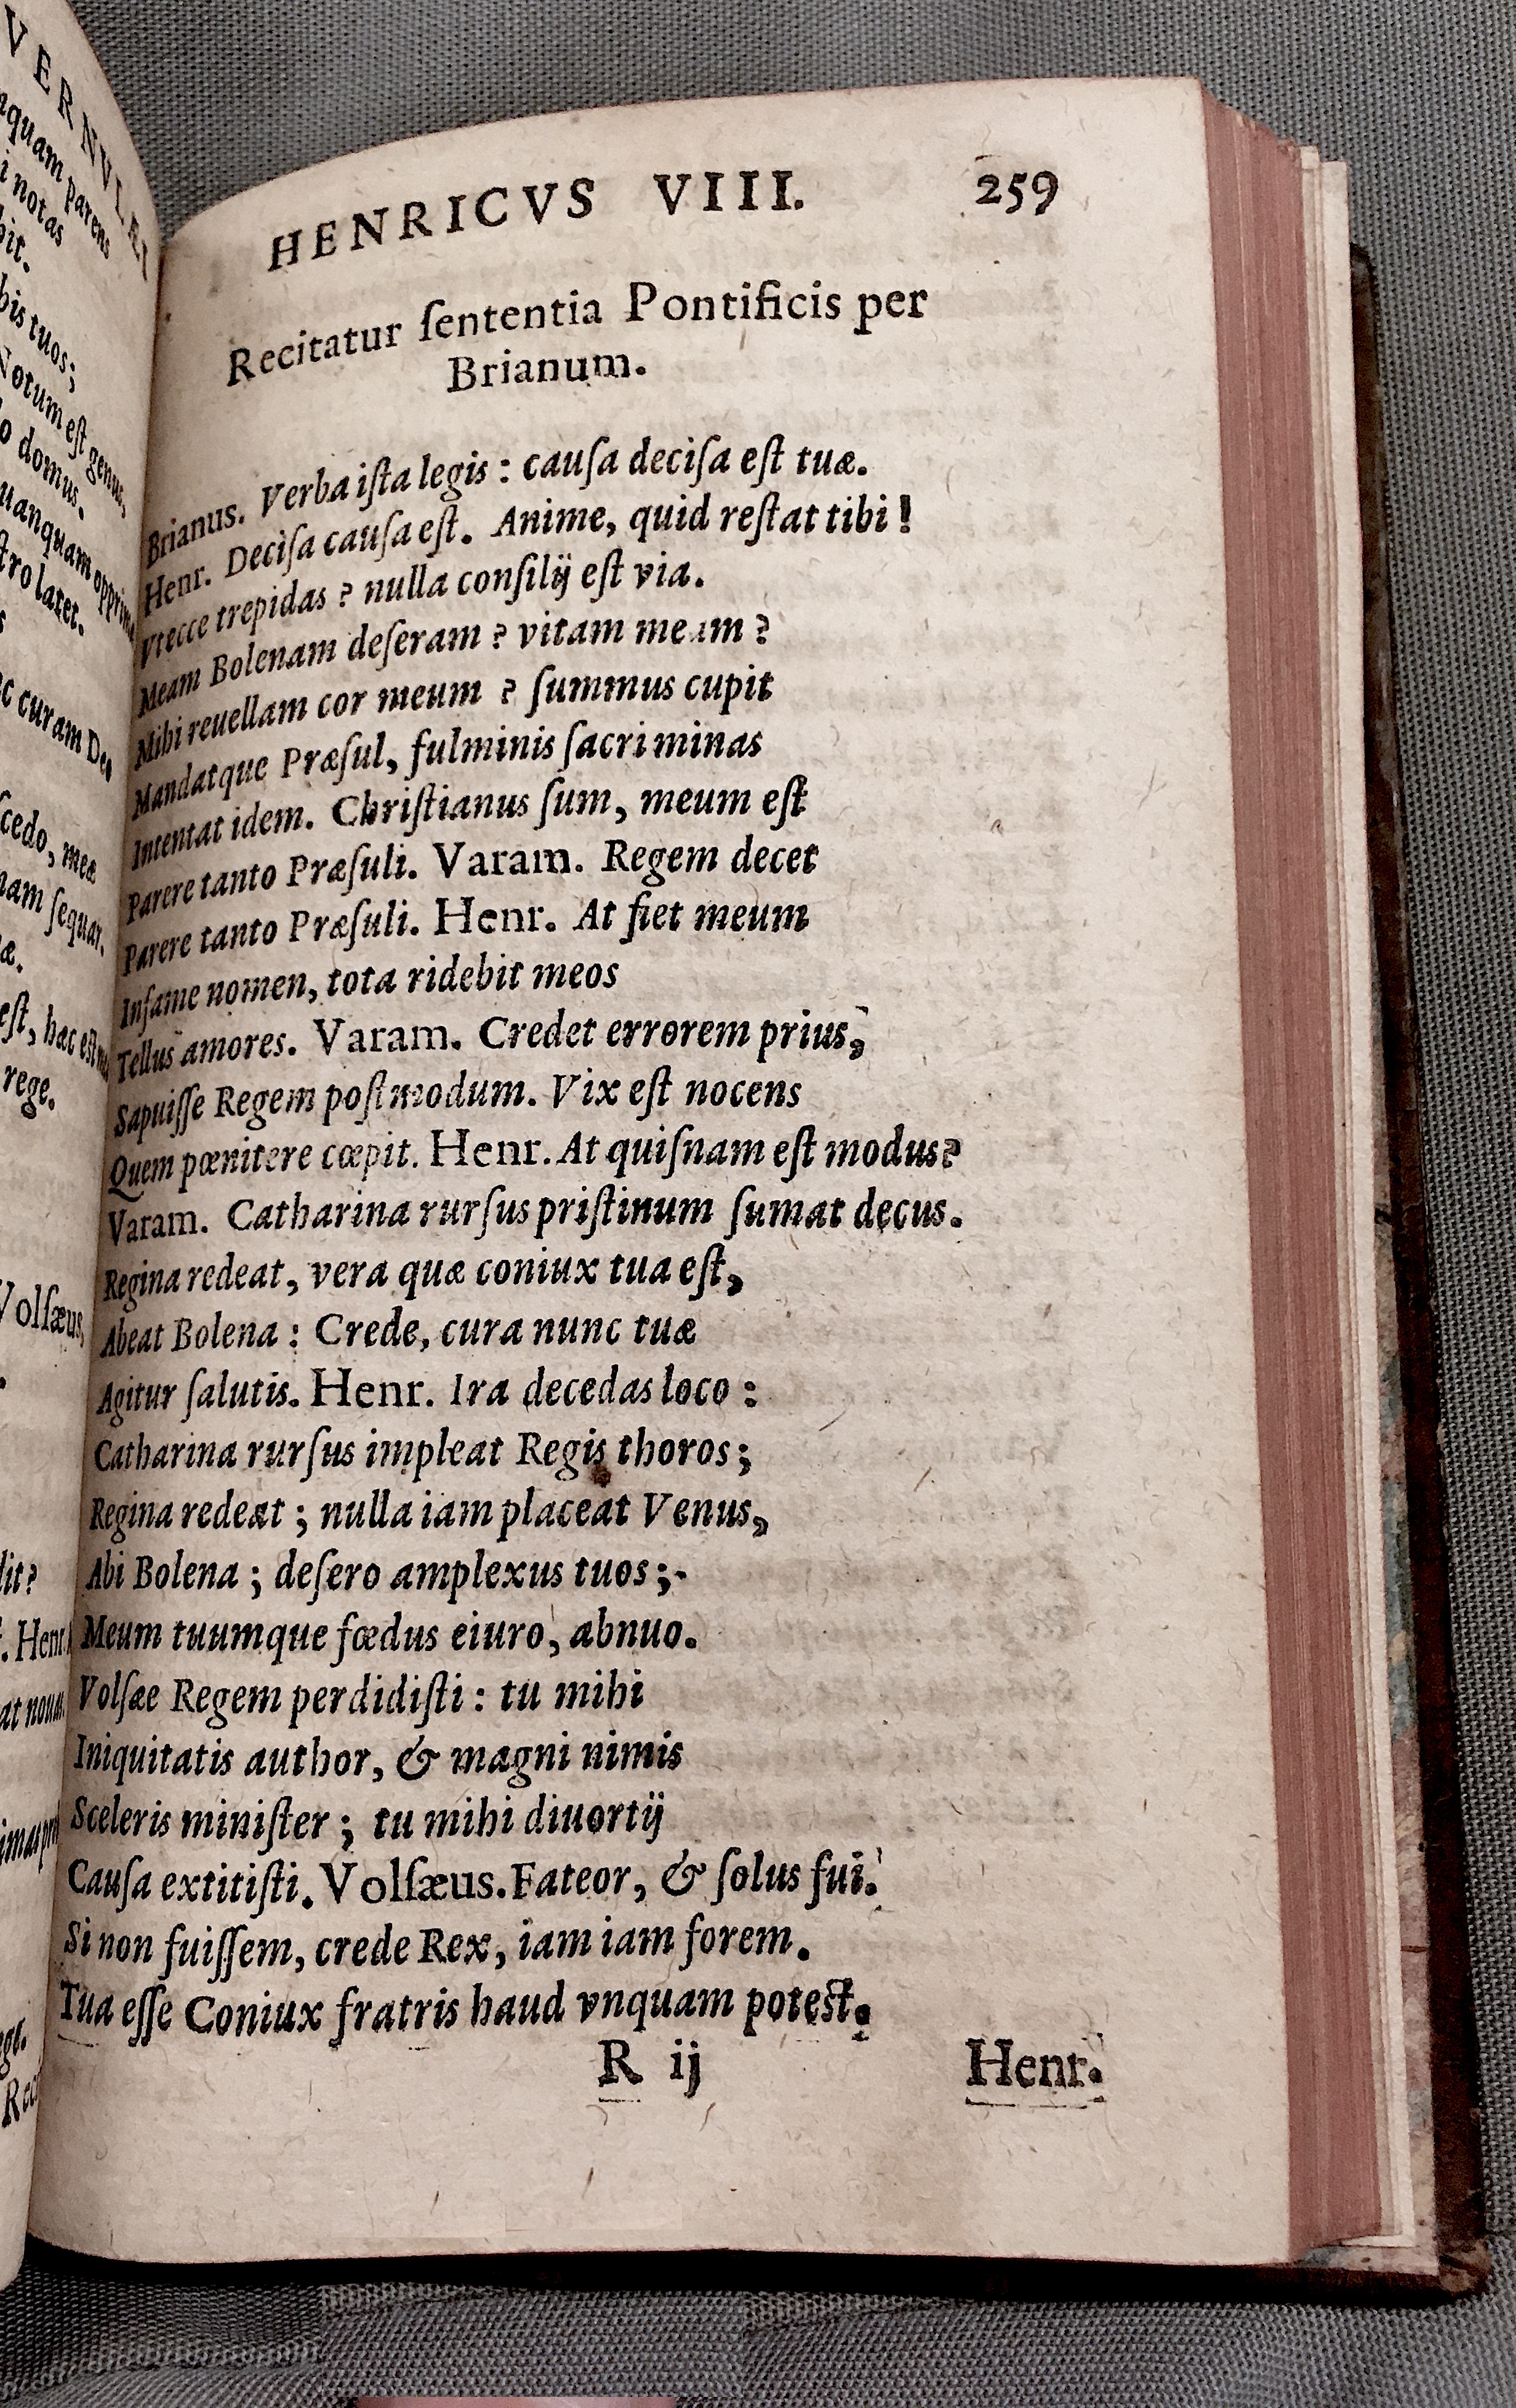 VERNVLÆI
nquam parens
i notas
bit.
bis tuos;
Notum eſt genus,
o domus.
uanquam opprima
ſtro latet.
s
c curam Deo
ſcedo, meæ
nam ſequar.
æ.
eſt, hæc eſt
rege.
Volſæus,
.
dit?
. Henr.
at noua
imas
ge.
Rec
HENRICVS VIII. 259
Recitatur ſententia Pontificis per
Brianum.
Brianus. Verba iſta legis : cauſa deciſa eſt tuæ.
Henr. Deciſa cauſa eſt. Anime, quid reſtat tibi !
Vtecce trepidas ? nulla conſilij eſt via.
Meam Bolenam deſeram ? vitam meam ?
Mihi reuellam cor meum ? ſummus cupit
Mandatque Præſul, fulminis ſacri minas
Intentat idem. Chriſtianus ſum, meum eſt
Parere tanto Præſuli. Varam. Regem decet
Parere tanto Præſuli. Henr. At fiet meum
Infame nomen, tota ridebit meos
Tellus amores. Varam. Credet errorem prius,
Sapuiſſe Regem poſtmodum. Vix eſt nocens
Quem pœnitere cœpit. Henr. At quiſnam eſt modus?
Varam. Catharina rurſus priſtinum ſumat decus.
Regina redeat, vera quæ coniux tua eſt,
Abeat Bolena : Crede, cura nunc tuæ
Agitur ſalutis. Henr. Ira decedas loco :
Catharina rurſus impleat Regis thoros ;
Regina redeat ; nulla iam placeat Venus,
Abi Bolena ; deſero amplexus tuos ;
Meum tuumque fœdus eiuro, abnuo.
Volſæe Regem perdidiſti : tu mihi
Iniquitatis author, & magni nimis
Sceleris miniſter ; tu mihi diuortij
Cauſa extitiſti. Volſæus. Fateor, & ſolus fui.
Si non fuiſſem, crede Rex, iam iam forem.
Tua eſſe Coniux fratris haud vnquam poteſt.
R ij Henr.